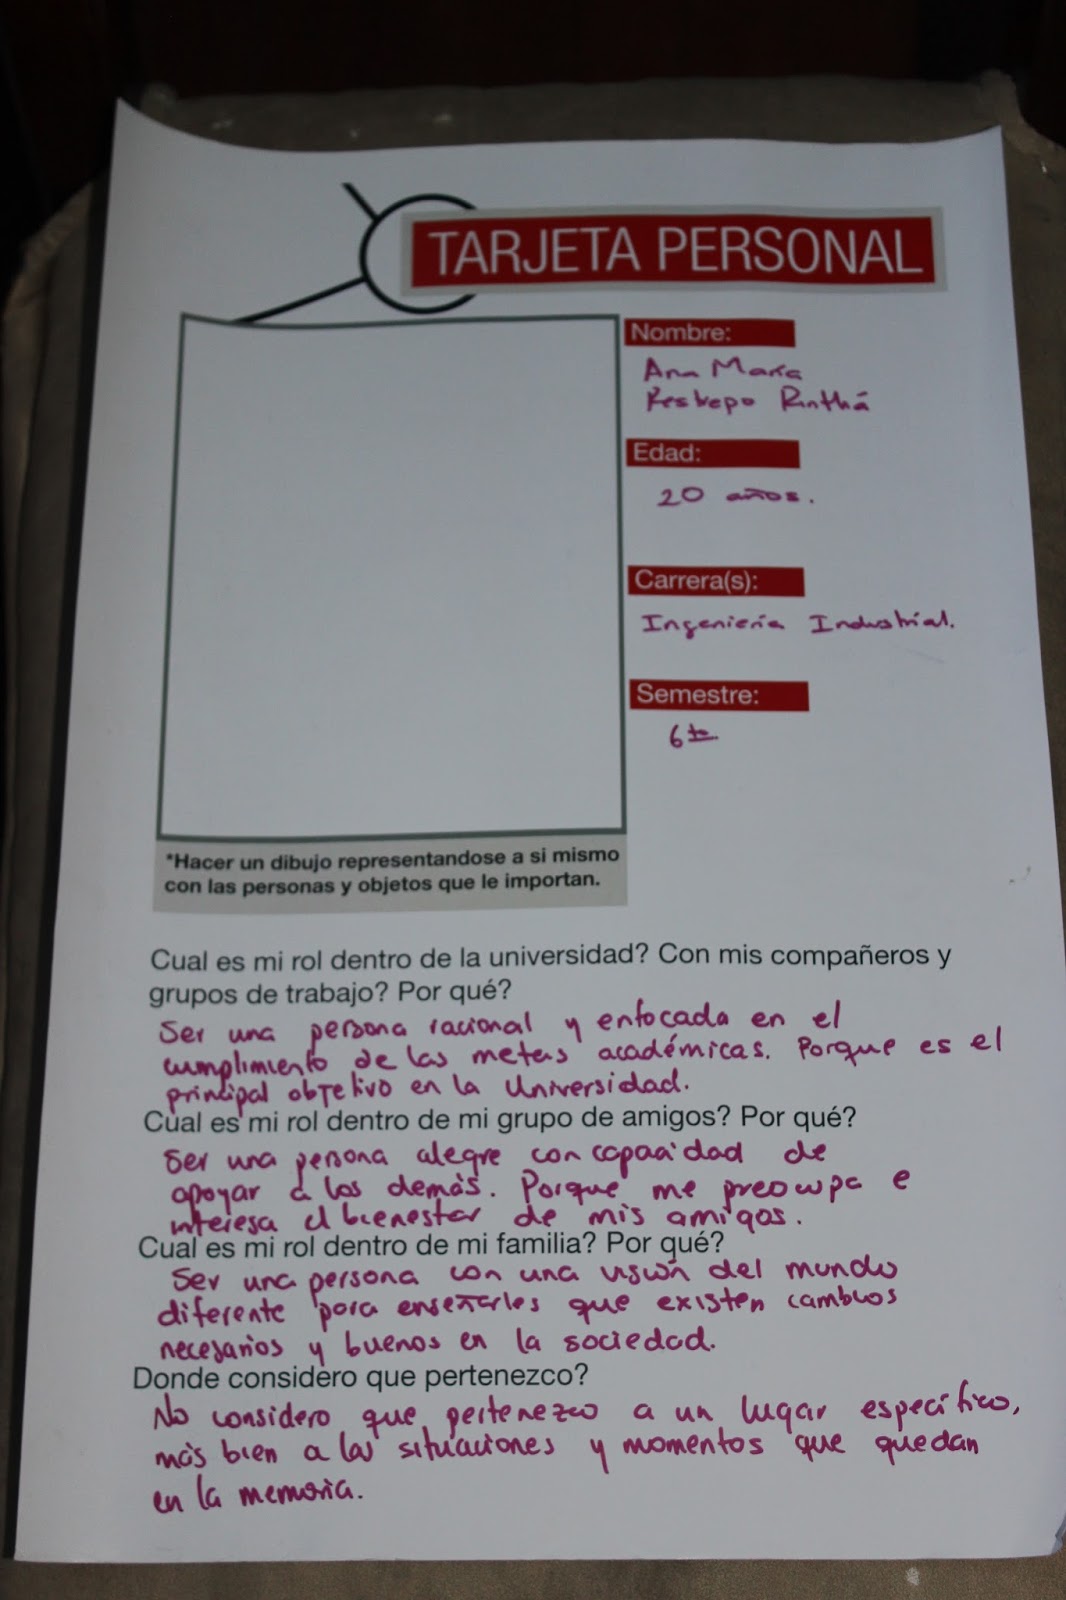 TARJETA PERSONAL
Nombre:
Ana María
Restrepo Rinthá
Edad:
20 años.
Carrera(s):
Ingeniería Industrial.
Semestre:
6to
*Hacer un dibujo representandose a si mismo
con las personas y objetos que le importan.
Cual es mi rol dentro de la universidad? Con mis compañeros y
grupos de trabajo? Por qué?
Ser una persona racional y enfocada en el
cumplimiento de las metas académicas. Porque es el
principal objetivo en la Universidad.
Cual es mi rol dentro de mi grupo de amigos? Por qué?
Ser una persona alegre con capacidad de
apoyar a los demás. Porque me preocupa e
interesa el bienestar de mis amigos.
Cual es mi rol dentro de mi familia? Por qué?
Ser una persona con una visión del mundo
diferente para enseñarles que existen cambios
necesarios y buenos en la sociedad.
Donde considero que pertenezco?
No considero que pertenezco a un lugar específico,
más bien a las situaciones y momentos que quedan
en la memoria.